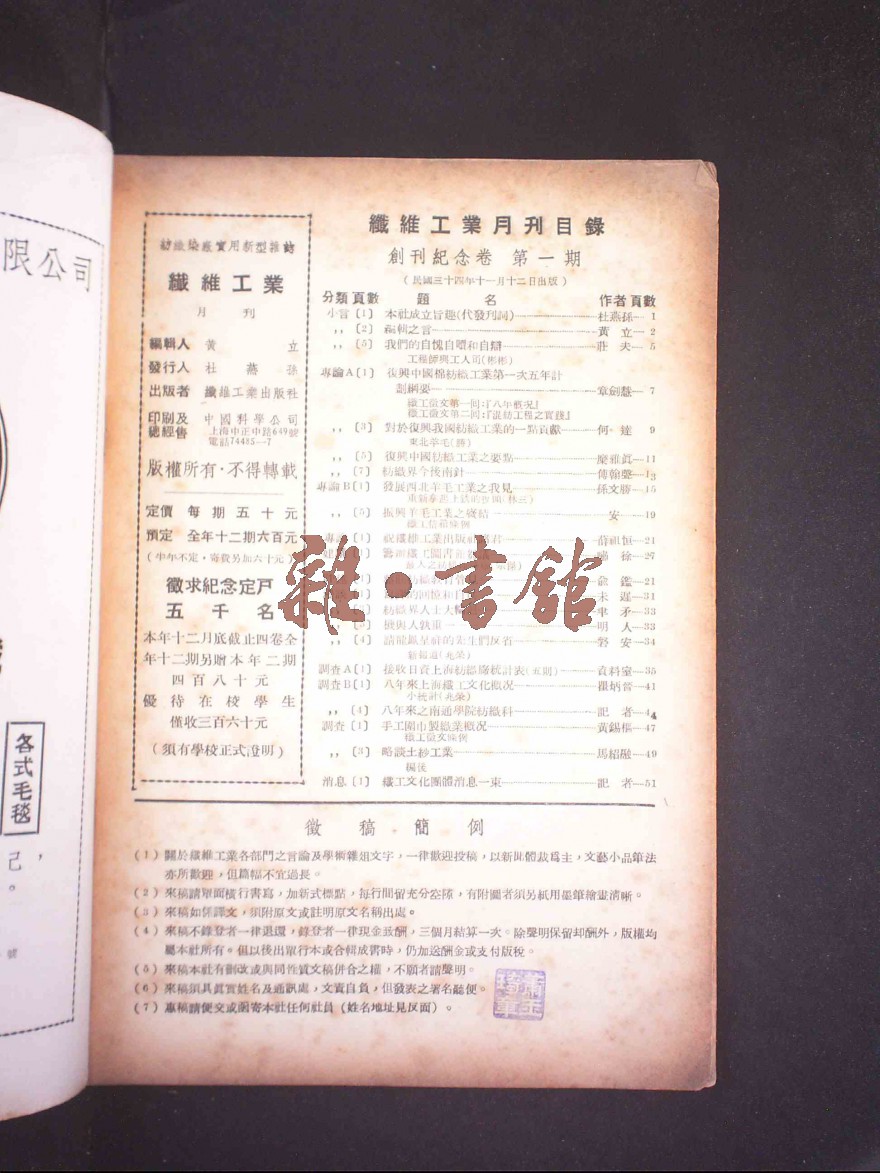 限公司
各式毛毯
己，
。
紡織染廠實用新型雜誌
纖維工業
月刊
編輯人 黃立
發行人 杜燕孫
出版者 纖維工業出版社
印刷及 中國科學公司
總經售 上海中正中路649號
電話74485—7
版權所有·不得轉載
定價 每期五十元
預定 全年十二期六百元
徵求紀念定戶
五千名
本年十二月底截止四卷全
年十二期另贈本年二期
四百八十元
優待在校學生
僅收三百六十元
（須有學校正式證明）
纖維工業月刊目錄
創刊紀念卷 第一期
（民國三十四年十一月十二日出版）
分類 頁數 題名 作者 頁數
小言〔1〕 本社成立旨趣(代發刊詞) 杜燕孫 1
,,〔2〕 編輯之言 黃立 2
,,〔5〕 我們的自愧自噴和自辯 莊夫 5
工程師與工人司(彬彬)
專論A〔1〕 復興中國棉紡織工業第一次五年計
劃綱要 章劍慧 7
纖工徵文第一回:『八年概況』
纖工徵文第二回:『混紡工程之實踐』
,,〔3〕 對於復興我國紡織工業的一點貢獻 何達 9
東北羊毛(勝)
,,〔5〕 復興中國紡織工業之要點 11
,,〔7〕 紡織界今後南針 傅翰聲 13
專論B〔1〕 發展西北羊毛工業之我見 孫文勝 15
,,〔5〕 振興羊毛工業之癥結 安 19
纖工信箱條例
〔1〕 祝纖維工業出版 蔣祖恒 21
徐 27
俞鑑 21
未遲 31
〔4〕 請龍鳳呈祥的先生們反省 安 34
調查A〔1〕 接收日資上海紡織廠統計表(五則) 資料室 35
調查B〔1〕 八年來上海纖工文化概況 瞿炳晉 41
小統計(兆榮)
,,〔4〕 八年來之南通學院紡織科 記者 44
調查〔1〕 手工圍巾製織業概況 黃錫樞 47
纖工徵文條例
,,〔3〕 略談土紗工業 馬紹融 49
編後
消息〔1〕 纖工文化團體消息一束 記者 51
雜·書館
徵稿簡例
(1) 關於纖維工業各部門之言論及學術雜俎文字，一律歡迎投稿，以新穎體裁爲主，文藝小品筆法
亦所歡迎，但篇幅不宜過長。
(2) 來稿請單面橫行書寫，加新式標點，每行間留充分空隙，有附圖者須另紙用墨筆繪畫清晰。
(3) 來稿如係譯文，須附原文或註明原文名稱出處。
(4) 來稿不錄登者一律退還，錄登者一律現金致酬，三個月結算一次。除聲明保留却酬外，版權均
屬本社所有。但以後出單行本或合輯成書時，仍加送酬金或支付版稅。
(5) 來稿本社有刪改或與同性質文稿併合之權，不願者請聲明。
(6) 來稿須具眞實姓名及通訊處，文責自負，但發表之署名聽便。
(7) 惠稿請便交或函寄本社任何社員（姓名地址見反面）。